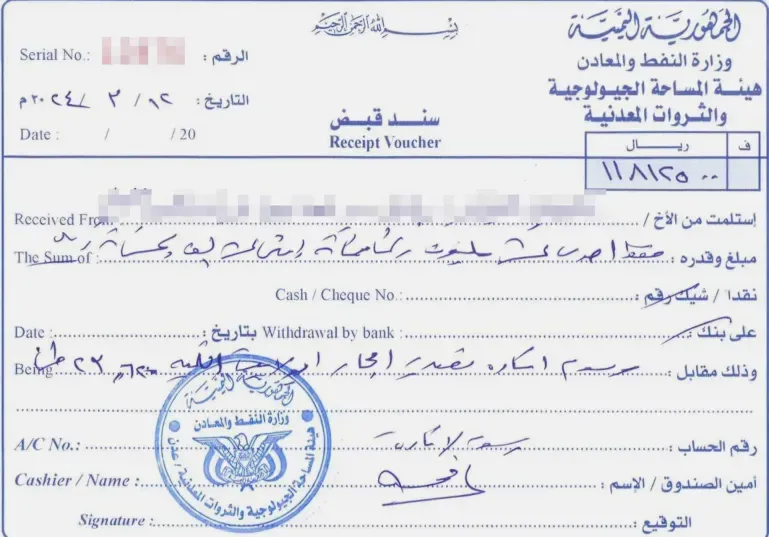 بسم الله الرحمن الرحيم
الجمهورية اليمنية
وزارة النفط والمعادن
هيئة المساحة الجيولوجية
والثروات المعدنية
Serial No.: الرقم :
التاريخ : ١٢ / ٣ / ٢٠٢٤ م
Date : / / 20
سند قبض
Receipt Voucher
ريال ف
١١٨١٢٥٠٠
Received From إستلمت من الأخ /
The Sum of : مبلغ وقدره : فقط احدى عشر مليون وثمانمائة واثنى عشر الف وخمسمائة ريال
Cash / Cheque No.: نقدا / شيك رقم :
Date : بتاريخ : Withdrawal by bank : على بنك :
Being وذلك مقابل : رسوم تصدير احجار ٢٣ طن
A/C No.: رقم الحساب :
Cashier / Name : أمين الصندوق / الإسم :
Signature : التوقيع :
الجمهورية اليمنية
وزارة النفط والمعادن
هيئة المساحة الجيولوجية والثروات المعدنية / عدن